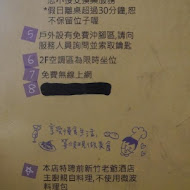 *假日離桌超過30分鐘,恕
不保留位子囉
5 戶外設有免費沖腳區,請向
服務人員詢問並索取鑰匙
6 2F空調區為限時坐位
7 免費無線上網
8
本店特聘前新竹老爺酒店
主廚親自料理,不使用微波
料理包